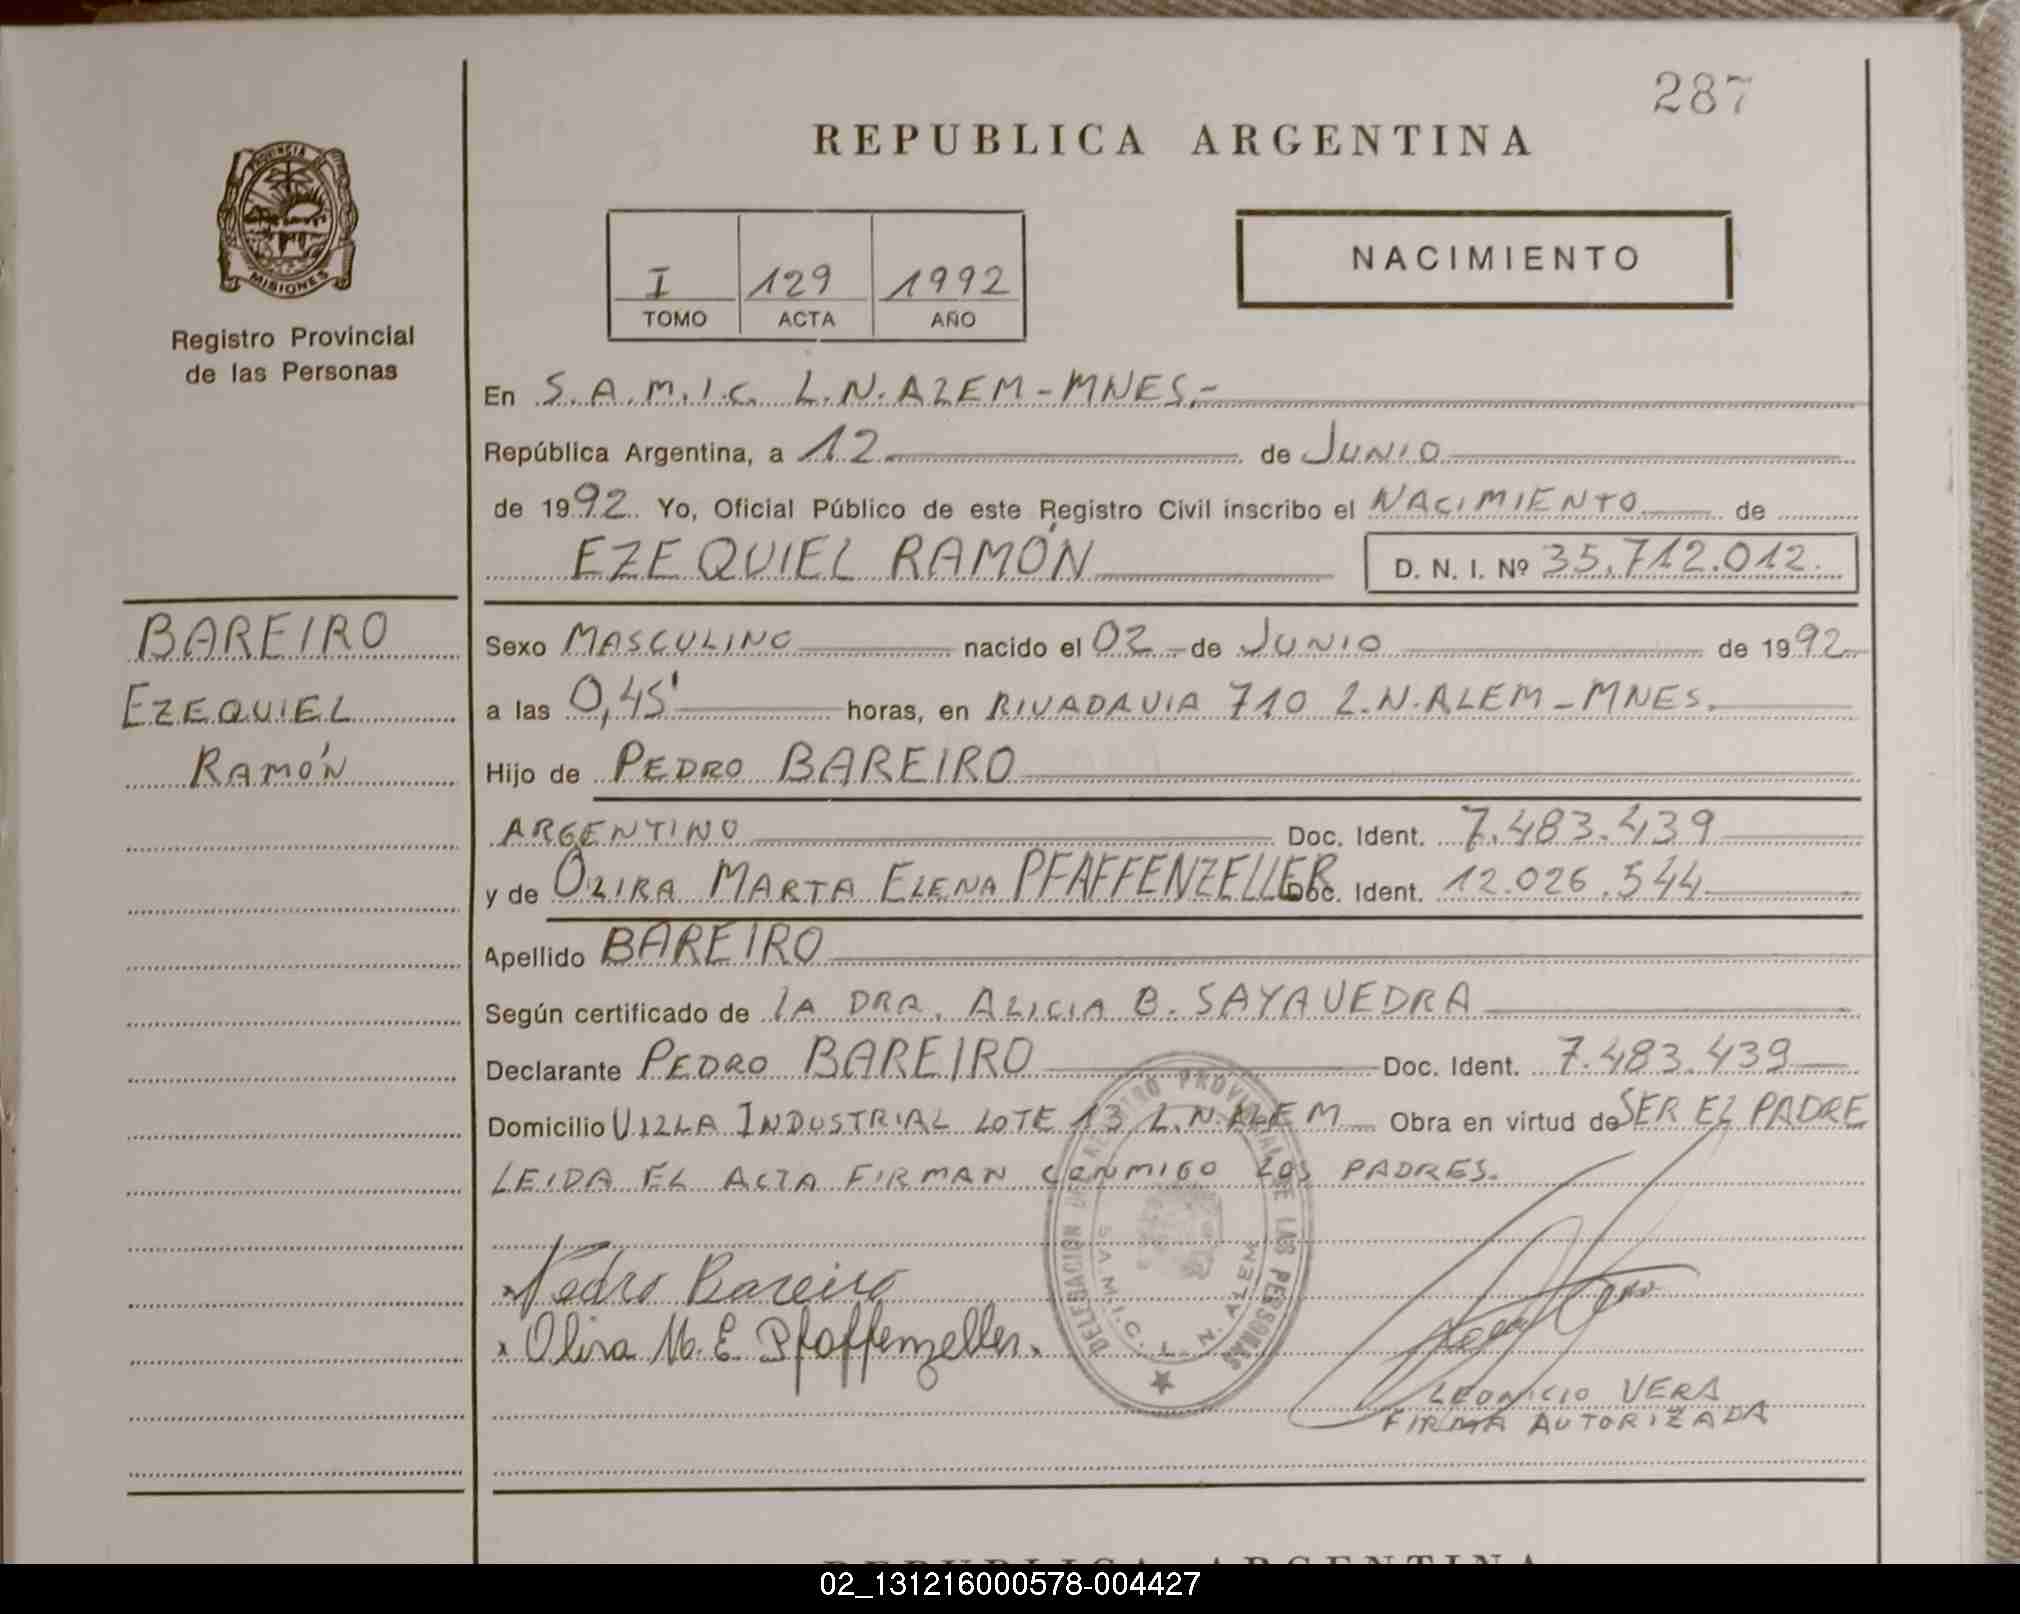 287
REPUBLICA ARGENTINA
PROVINCIA
MISIONES
Registro Provincial
de las Personas
I 129 1992
TOMO ACTA AÑO
NACIMIENTO
En S.A.M.I.C. L.N.ALEM-MNES.-
República Argentina, a 12 de JUNIO
de 1992. Yo, Oficial Público de este Registro Civil inscribo el NACIMIENTO de
EZEQUIEL RAMÓN D. N. I. Nº 35.712.012.
BAREIRO
EZEQUIEL
RAMÓN
Sexo MASCULINO nacido el 02 de JUNIO de 1992
a las 0,45' horas, en RIVADAVIA 710 L.N.ALEM-MNES.
Hijo de PEDRO BAREIRO
ARGENTINO Doc. Ident. 7.483.439
y de OLIRA MARTA ELENA PFAFFENZELLER Doc. Ident. 12.026.544
Apellido BAREIRO
Según certificado de LA DRA. ALICIA B. SAYAVEDRA
Declarante PEDRO BAREIRO Doc. Ident. 7.483.439
Domicilio VILLA INDUSTRIAL LOTE 13 L.N.ALEM Obra en virtud de SER EL PADRE
LEIDA EL ACTA FIRMAN CONMIGO LOS PADRES.
Pedro Bareiro
Olira M. E. Pfaffenzeller.
DELEGACION DEL REGISTRO PROVINCIAL DE LAS PERSONAS
S.A.M.I.C. L. N. ALEM
LEONICIO VERA
FIRMA AUTORIZADA
REPUBLICA ARGENTINA
02_131216000578-004427